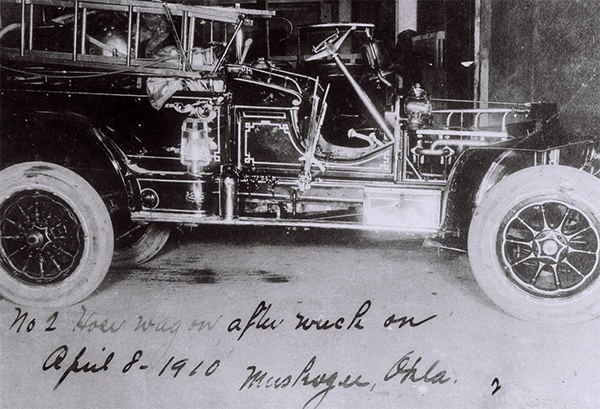 No 2 Hose wagon after wreck on
April 8-1910 Muskogee, Okla. 2